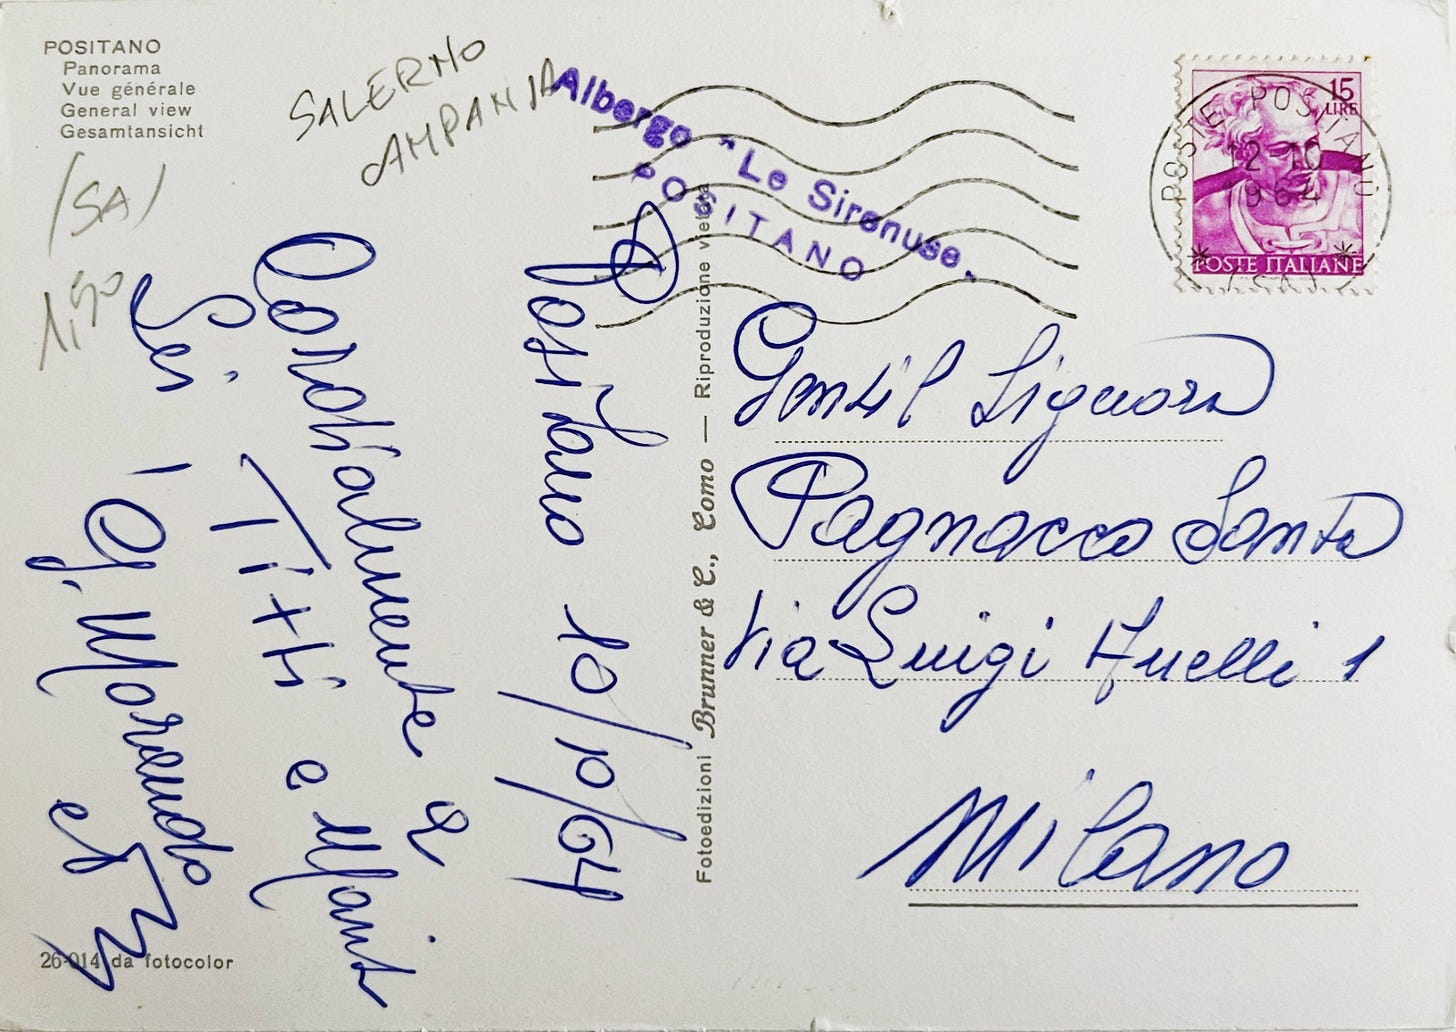 POSITANO
Panorama
Vue générale
General view
Gesamtansicht
SALERNO
CAMPANIA
(SA)
1,50
Albergo "Le Sirenuse"
POSITANO
15
LIRE
POSTE ITALIANE
POSTE POSITANO
12 10
1964
(SA)
Positano 10/10/64
Cordialmente a
Titti e
Sei
G. Morando
Gentil Signora
Pagnacco Santa
Via Luigi Anelli 1
Milano
Fotoedizioni Brunner & C., Como — Riproduzione vietata
26-014 da fotocolor